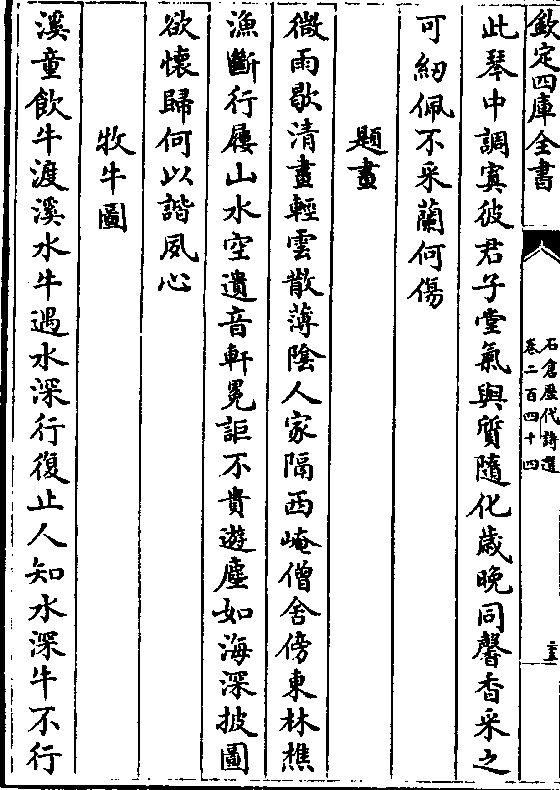 欽定四庫全書
石倉歷代詩選
卷二百四十四
此琴中調寘彼君子堂氣與質隨化歲晚同馨香采之
可紉佩不采蘭何傷
題畫
微雨歇清晝輕雲散薄陰人家隔西崦僧舍傍東林樵
漁斷行屨山水空遺音軒冕詎不貴遊塵如海深披圖
欲懷歸何以諧夙心
牧牛圖
溪童飲牛渡溪水牛過水深行復止人知水深牛不行